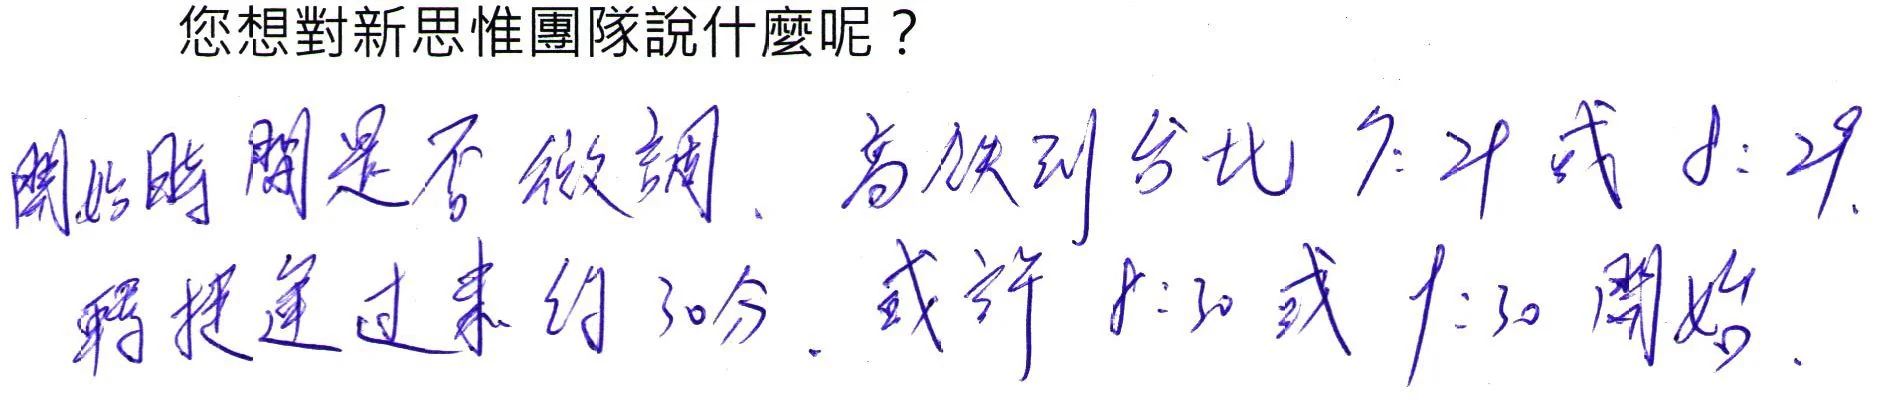 您想對新思惟團隊說什麼呢？
開始時間是否微調、高鐵到台北 7:29 或 8:29.
轉捷運过来約30分. 或許 8:30 或 9:30 開始.